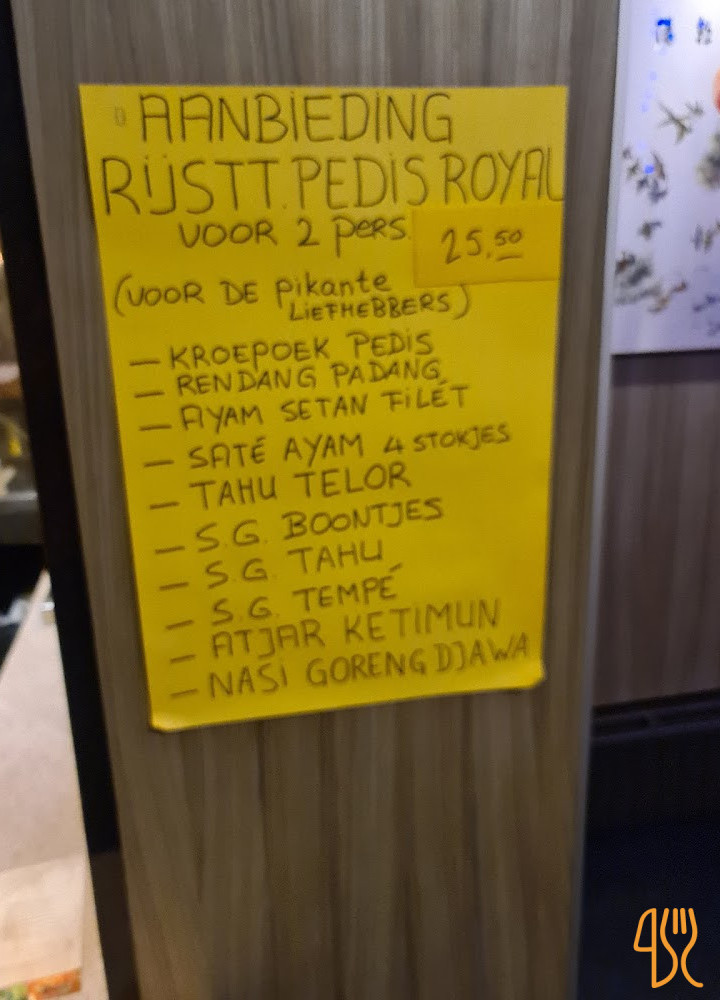 AANBIEDING
RIJSTT. PEDIS ROYAL
VOOR 2 PERS. 25,50
(VOOR DE pikante
LIEFHEBBERS)
- KROEPOEK PEDIS
- RENDANG PADANG
- AYAM SETAN FILÉT
- SATÉ AYAM 4 STOKJES
- TAHU TELOR
- S.G. BOONTJES
- S.G. TAHU
- S.G. TEMPÉ
- ATJAR KETIMUN
- NASI GORENG DJAWA